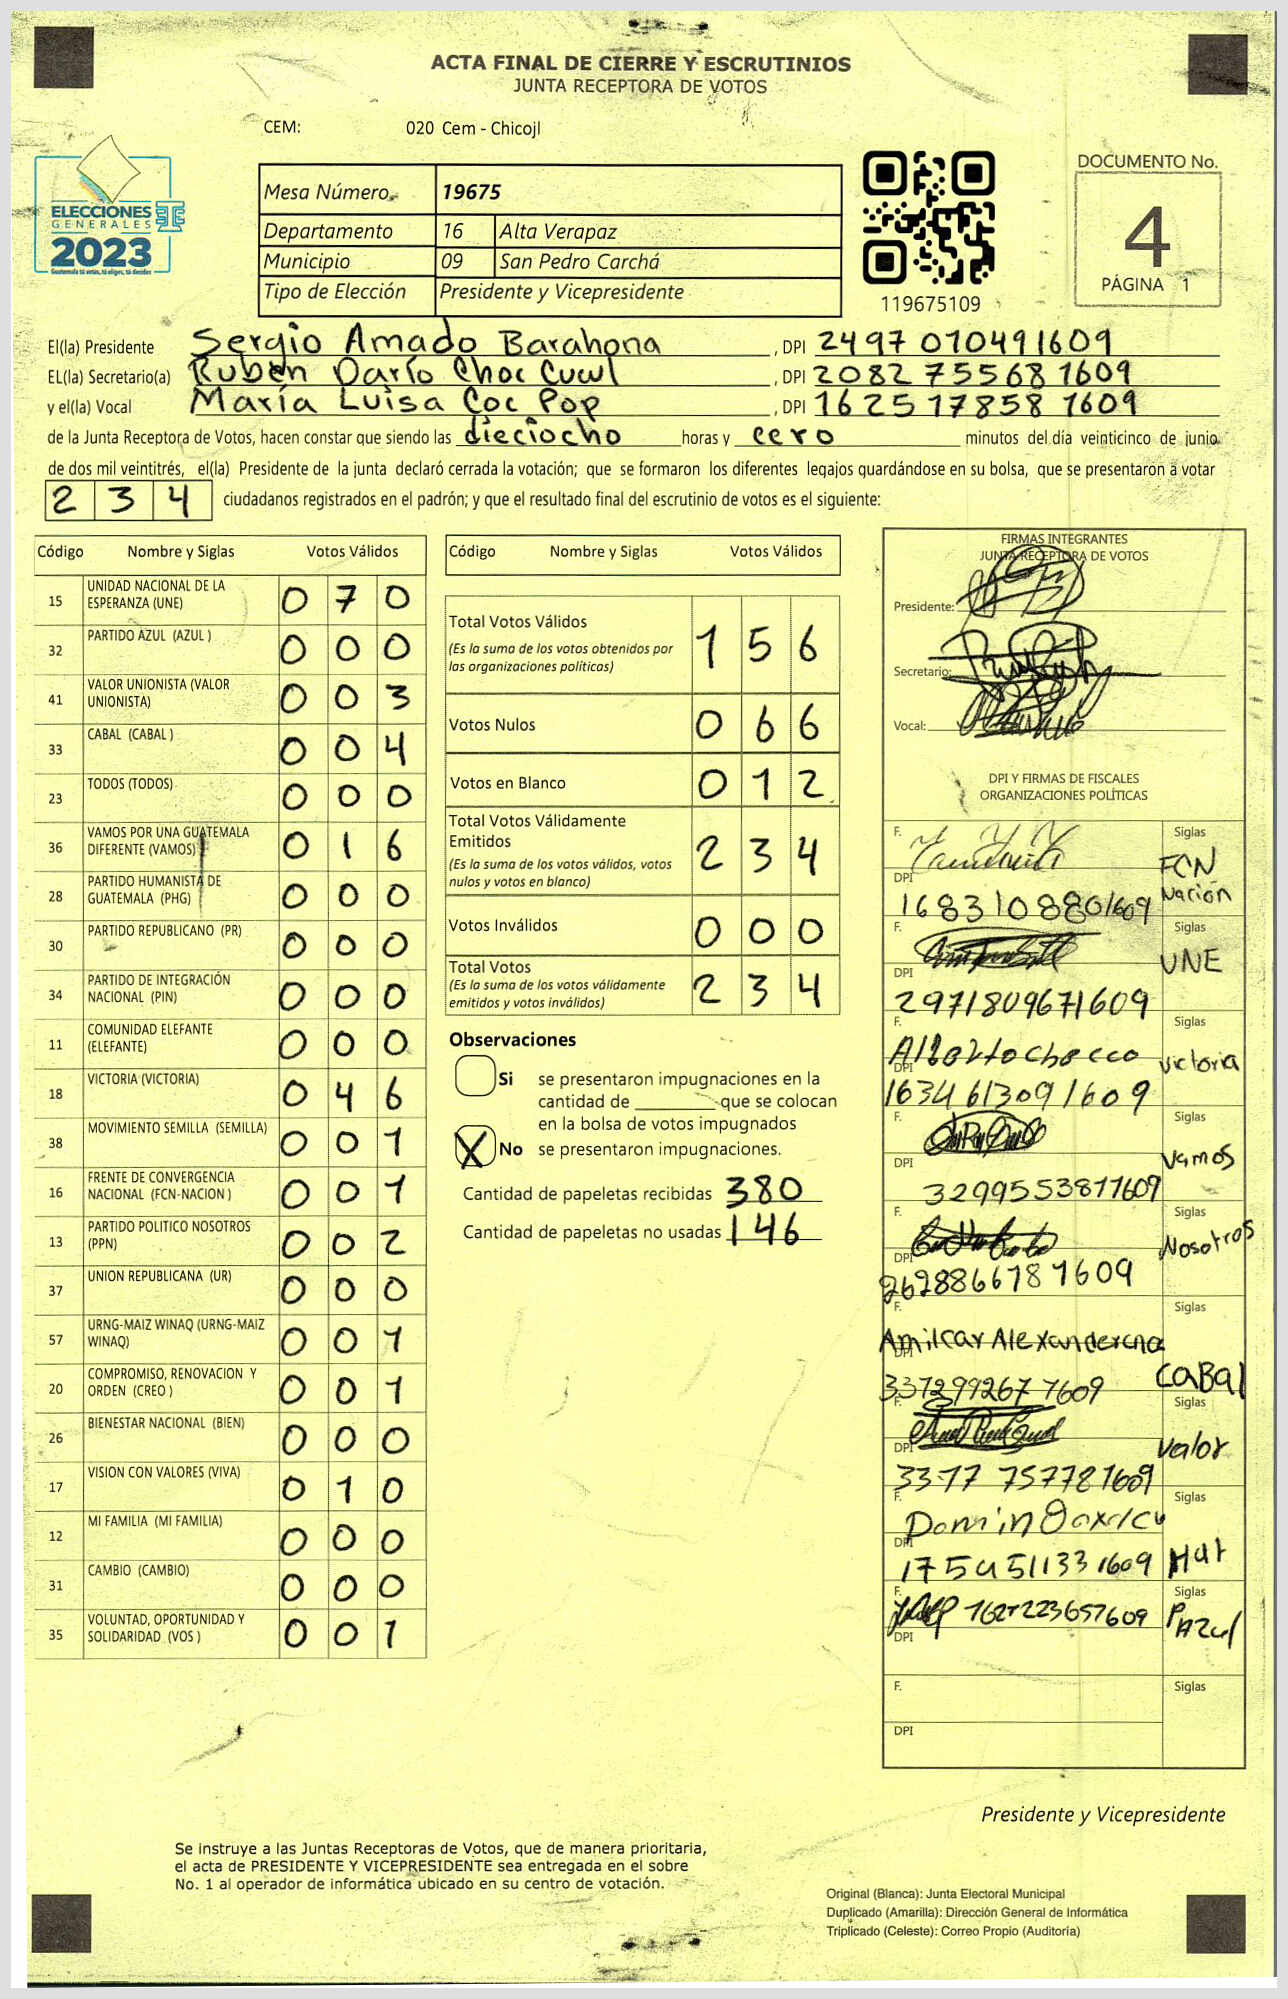 ACTA FINAL DE CIERRE Y ESCRUTINIOS
JUNTA RECEPTORA DE VOTOS
CEM: 020 Cem - Chicojl
ELECCIONES
GENERALES
2023
Guatemala tú votas, tú eliges, tú decides
Mesa Número 19675
Departamento 16 Alta Verapaz
Municipio 09 San Pedro Carchá
Tipo de Elección Presidente y Vicepresidente
119675109
DOCUMENTO No.
4
PÁGINA 1
El(la) Presidente Sergio Amado Barahona , DPI 2497 010491609
EL(la) Secretario(a) Ruben Darío Choc Cucul , DPI 2082 75568 1609
y el(la) Vocal María Luisa Coc Pop , DPI 1625 17858 1609
de la Junta Receptora de Votos, hacen constar que siendo las dieciocho horas y cero minutos del día veinticinco de junio
de dos mil veintitrés, el(la) Presidente de la junta declaró cerrada la votación; que se formaron los diferentes legajos guardándose en su bolsa, que se presentaron a votar
2 3 4 ciudadanos registrados en el padrón; y que el resultado final del escrutinio de votos es el siguiente:
Código Nombre y Siglas Votos Válidos
15 UNIDAD NACIONAL DE LA ESPERANZA (UNE) 0 7 0
32 PARTIDO AZUL (AZUL ) 0 0 0
41 VALOR UNIONISTA (VALOR UNIONISTA) 0 0 3
33 CABAL (CABAL ) 0 0 4
23 TODOS (TODOS) 0 0 0
36 VAMOS POR UNA GUATEMALA DIFERENTE (VAMOS) 0 1 6
28 PARTIDO HUMANISTA DE GUATEMALA (PHG) 0 0 0
30 PARTIDO REPUBLICANO (PR) 0 0 0
34 PARTIDO DE INTEGRACIÓN NACIONAL (PIN) 0 0 0
11 COMUNIDAD ELEFANTE (ELEFANTE) 0 0 0
18 VICTORIA (VICTORIA) 0 4 6
38 MOVIMIENTO SEMILLA (SEMILLA) 0 0 1
16 FRENTE DE CONVERGENCIA NACIONAL (FCN-NACION ) 0 0 1
13 PARTIDO POLITICO NOSOTROS (PPN) 0 0 2
37 UNION REPUBLICANA (UR) 0 0 0
57 URNG-MAIZ WINAQ (URNG-MAIZ WINAQ) 0 0 1
20 COMPROMISO, RENOVACION Y ORDEN (CREO ) 0 0 1
26 BIENESTAR NACIONAL (BIEN) 0 0 0
17 VISION CON VALORES (VIVA) 0 1 0
12 MI FAMILIA (MI FAMILIA) 0 0 0
31 CAMBIO (CAMBIO) 0 0 0
35 VOLUNTAD, OPORTUNIDAD Y SOLIDARIDAD (VOS ) 0 0 1
Código Nombre y Siglas Votos Válidos
Total Votos Válidos 1 5 6
(Es la suma de los votos obtenidos por
las organizaciones políticas)
Votos Nulos 0 6 6
Votos en Blanco 0 1 2
Total Votos Válidamente
Emitidos 2 3 4
(Es la suma de los votos válidos, votos
nulos y votos en blanco)
Votos Inválidos 0 0 0
Total Votos 2 3 4
(Es la suma de los votos válidamente
emitidos y votos inválidos)
Observaciones
Si se presentaron impugnaciones en la
cantidad de que se colocan
en la bolsa de votos impugnados
X No se presentaron impugnaciones.
Cantidad de papeletas recibidas 380
Cantidad de papeletas no usadas 146
FIRMAS INTEGRANTES
JUNTA RECEPTORA DE VOTOS
Presidente:
Secretario:
Vocal:
DPI Y FIRMAS DE FISCALES
ORGANIZACIONES POLÍTICAS
F. Siglas FCN Nación
DPI 1683108801609
F. Siglas UNE
DPI 2971809671609
F. Siglas Victoria
DPI 1634 613091609
F. Siglas Vamos
DPI 3299553871609
F. Siglas Nosotros
DPI 2628866781609
F. Amilcar Siglas CABAl
DPI 3372992677609
F. Siglas Valor
DPI 3377 757781609
F. Siglas
DPI 1754511331609
F. Siglas P. Azul
DPI
F. Siglas
DPI
Presidente y Vicepresidente
Se instruye a las Juntas Receptoras de Votos, que de manera prioritaria,
el acta de PRESIDENTE Y VICEPRESIDENTE sea entregada en el sobre
No. 1 al operador de informática ubicado en su centro de votación.
Original (Blanca): Junta Electoral Municipal
Duplicado (Amarilla): Dirección General de Informática
Triplicado (Celeste): Correo Propio (Auditoría)